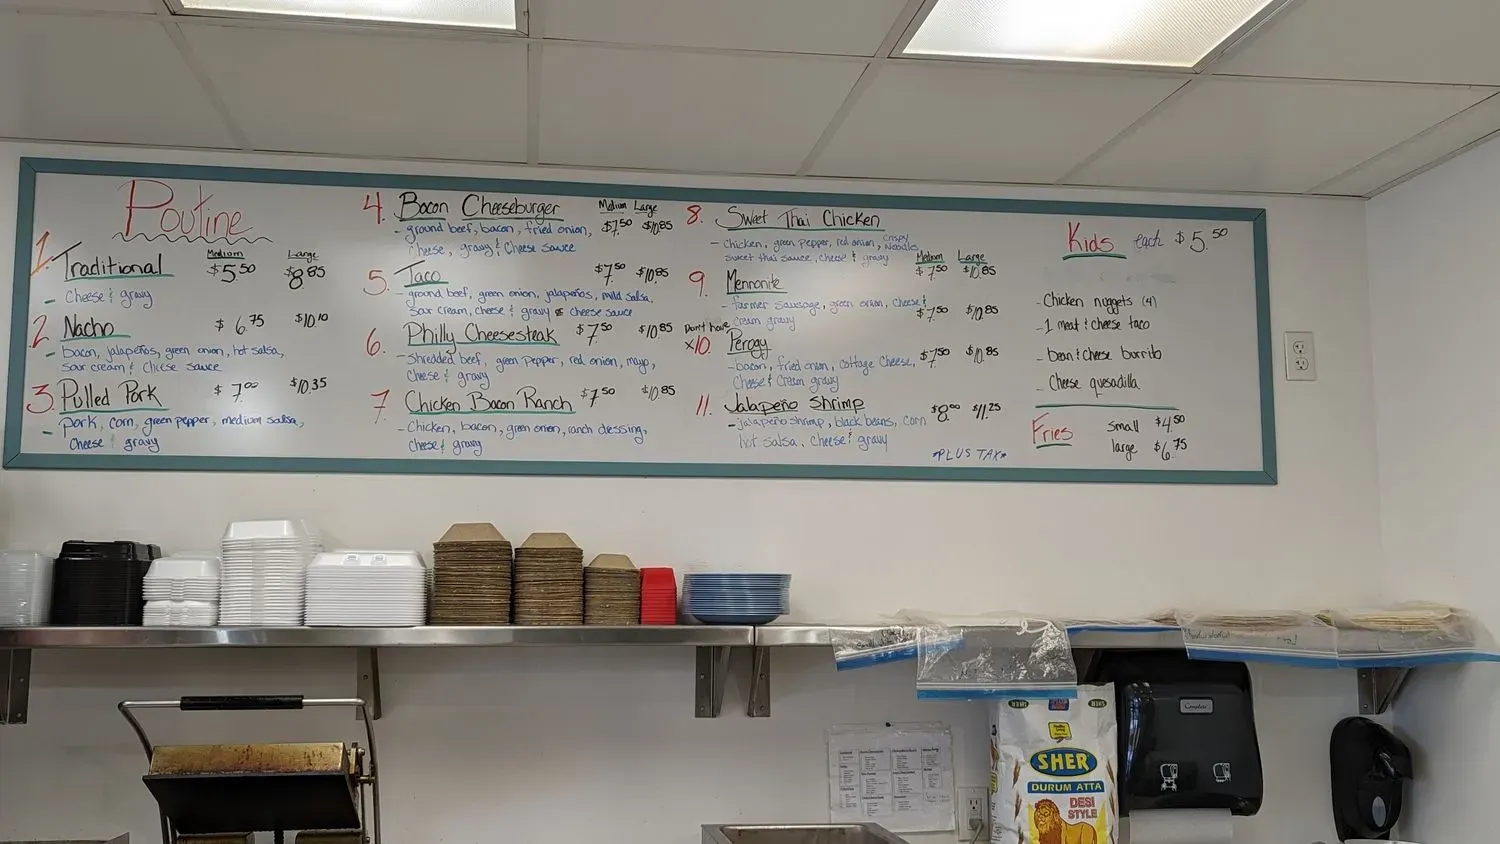 Poutine
Medium Large
1. Traditional $5.50 $8.85
- Cheese & gravy
2. Nacho $6.75 $10.10
- bacon, jalapeños, green onion, hot salsa,
sour cream & cheese sauce
3. Pulled Pork $7.00 $10.35
- pork, corn, green pepper, medium salsa,
cheese & gravy
4. Bacon Cheeseburger Medium Large
$7.50 $10.85
- ground beef, bacon, fried onion,
cheese, gravy & cheese sauce
5. Taco $7.50 $10.85
- ground beef, green onion, jalapeños, mild salsa,
sour cream, cheese & gravy & cheese sauce
6. Philly Cheesesteak $7.50 $10.85
- shredded beef, green pepper, red onion, mayo,
cheese & gravy
7. Chicken Bacon Ranch $7.50 $10.85
- Chicken, bacon, green onion, ranch dressing,
cheese & gravy
8. Sweet Thai Chicken
- chicken, green pepper, red onion, crispy noodles,
sweet thai sauce, cheese & gravy
Medium Large
$7.50 $10.85
9. Mennonite
- farmer sausage, green onion, cheese &
cream gravy
$7.50 $10.85
Don't have
x10. Perogy
- bacon, fried onion, cottage cheese,
cheese & cream gravy
$7.50 $10.85
11. Jalapeño Shrimp $8.00 $11.25
- jalapeño shrimp, black beans, corn
hot salsa, cheese & gravy
*PLUS TAX*
Kids each $5.50
- Chicken nuggets (4)
- 1 meat & cheese taco
- bean & cheese burrito
- Cheese quesadilla
Fries small $4.50
large $6.75
SHER
DURUM ATTA
DESI
STYLE